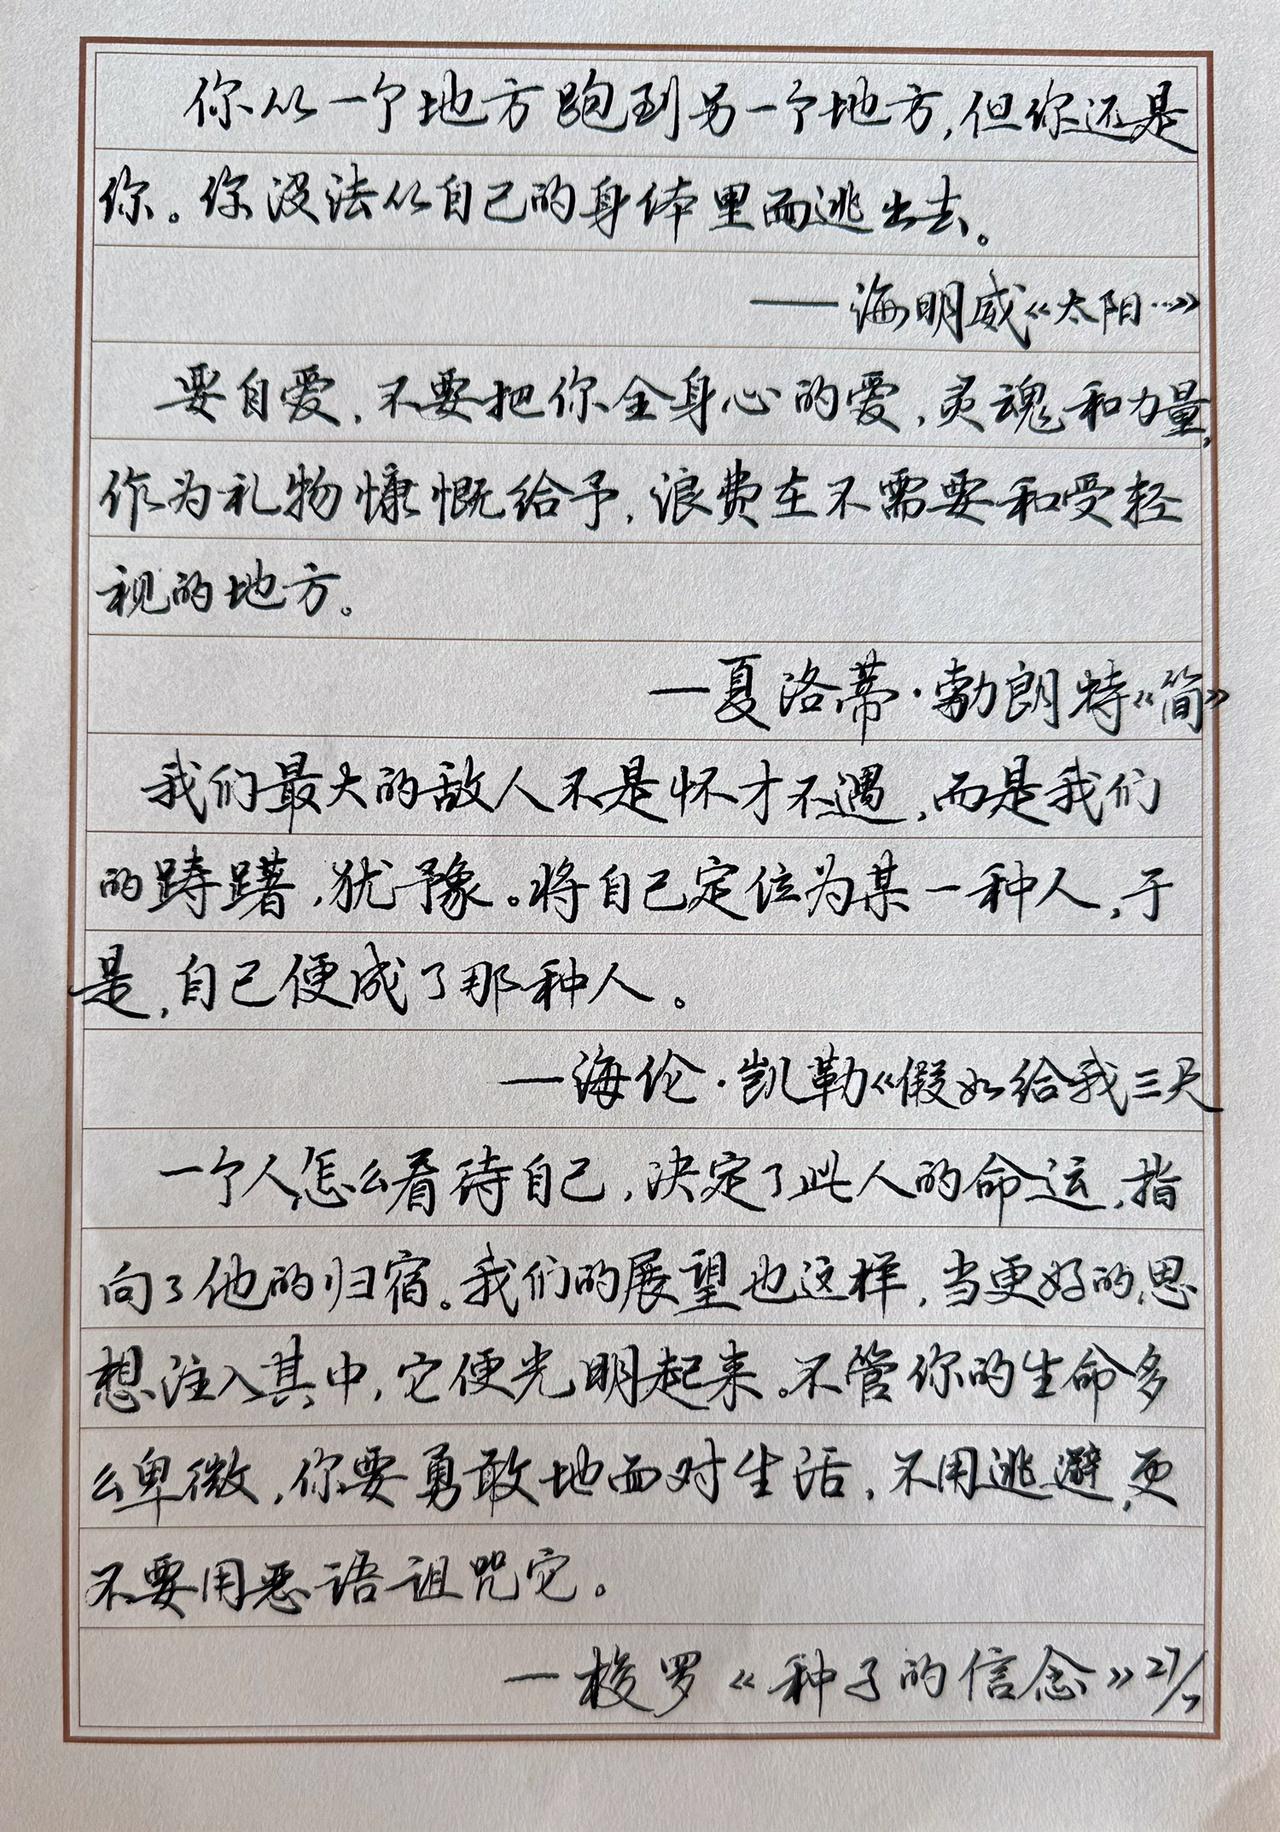 你从一个地方跑到另一个地方,但你还是
你。你没法从自己的身体里面逃出去。
——海明威《太阳…》
要自爱,不要把你全身心的爱,灵魂和力量,
作为礼物慷慨给予,浪费在不需要和受轻
视的地方。
—夏洛蒂·勃朗特《简》
我们最大的敌人不是怀才不遇,而是我们
的踌躇,犹豫。将自己定位为某一种人,于
是,自己便成了那种人。
—海伦·凯勒《假如给我三天
一个人怎么看待自己,决定了此人的命运,指
向了他的归宿。我们的展望也这样,当更好的思
想注入其中,它便光明起来。不管你的生命多
么卑微,你要勇敢地面对生活,不用逃避,更
不要用恶语诅咒它。
—梭罗《种子的信念》27/7